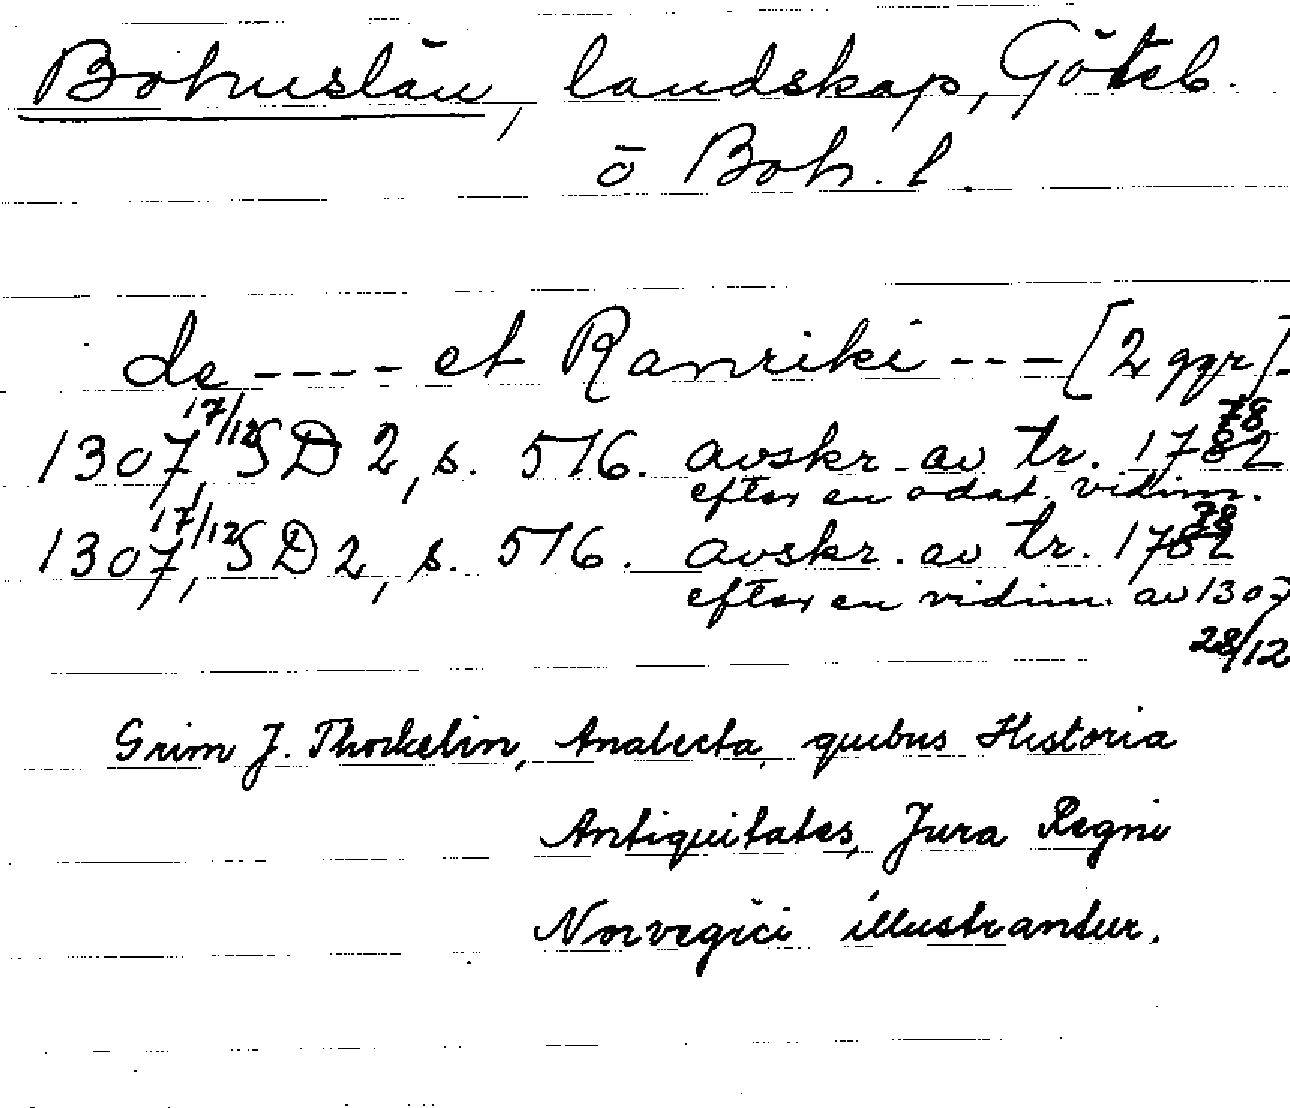 Bohuslän, landskap, Göteb.
o Boh. l.
de ---- et Ranriki --- [2 ggr].
1307 17/12, SD 2, s. 576. avskr. av tr. 1782 78
efter en odat. vidim.
1307 17/12, SD 2, s. 576. avskr. av tr. 1782 78
efter en vidim. av 1307
28/12
Grim J. Thorkelin, Analecta, quibus Historia
Antiquitates, Jura Regni
Norvegici illustrantur.